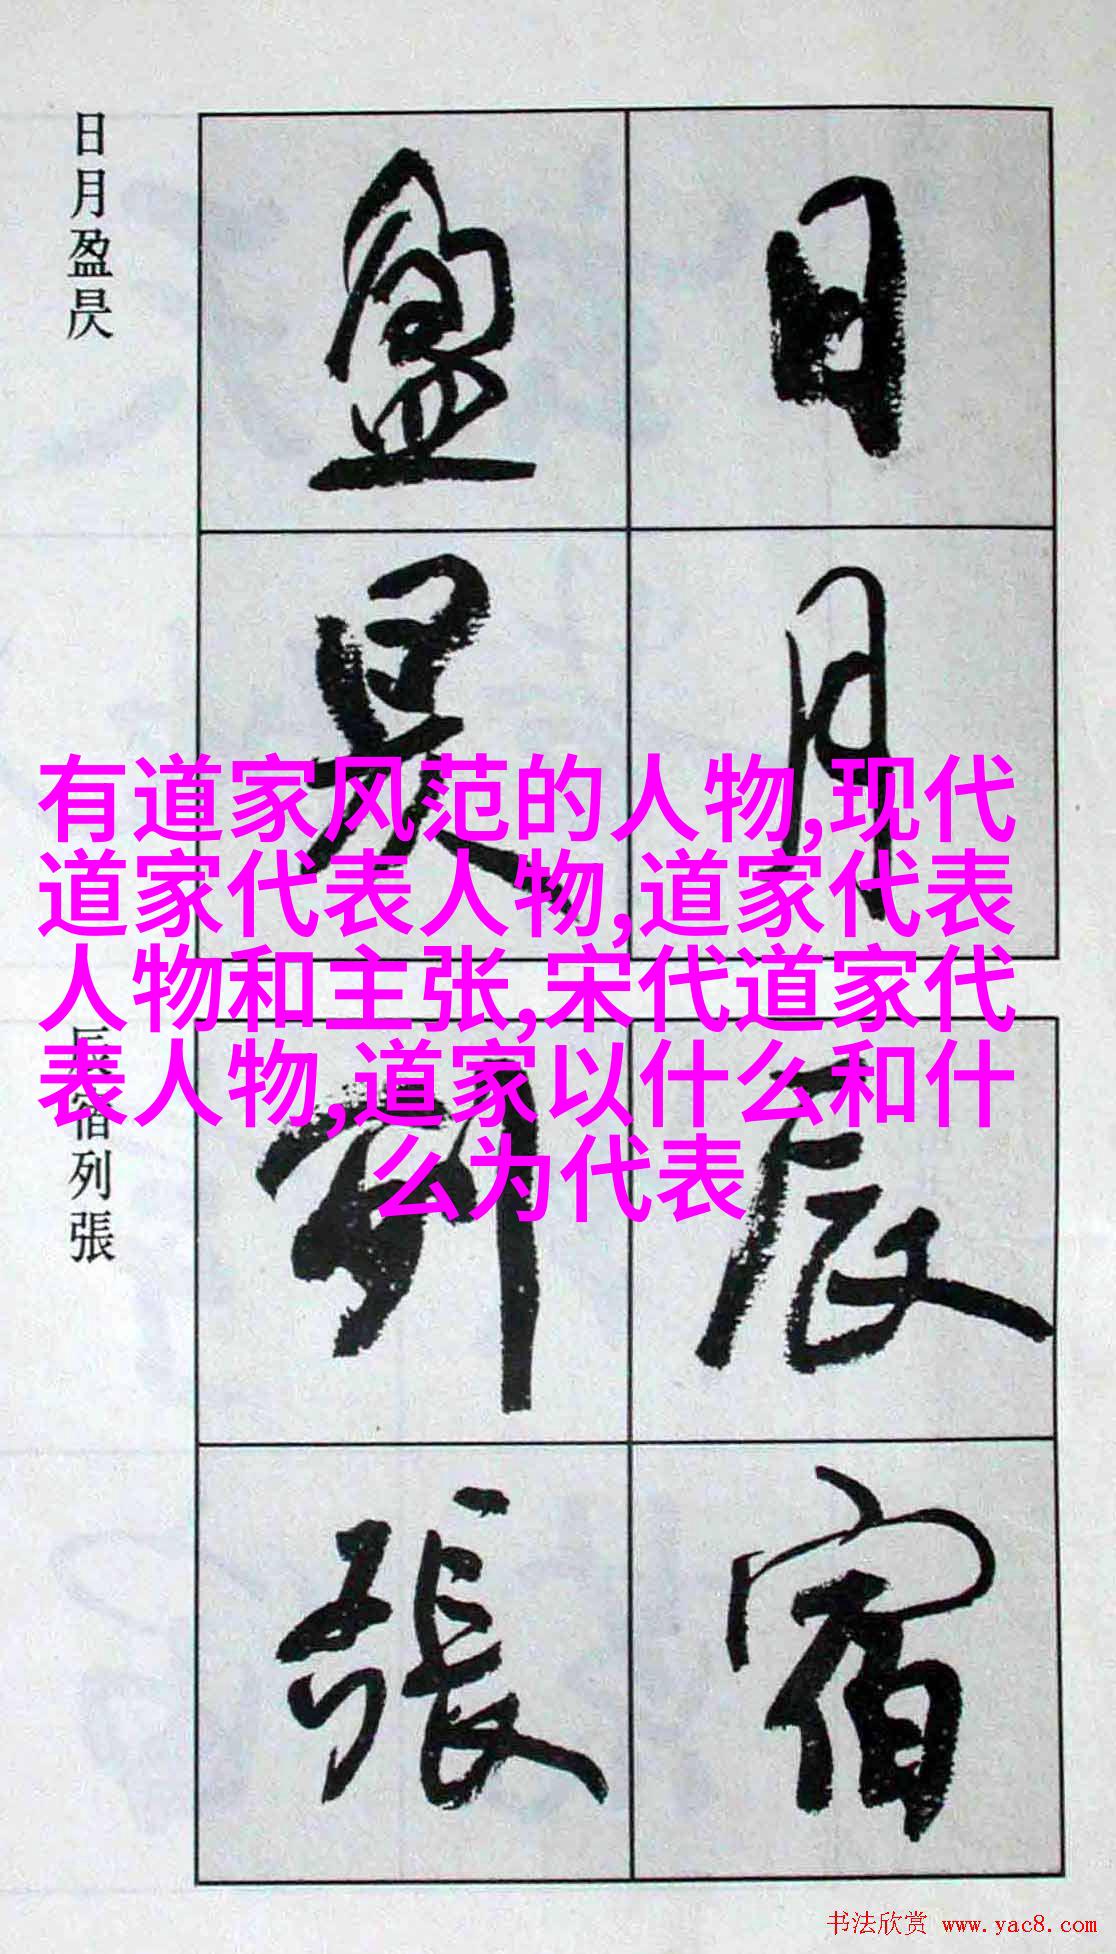 日月盈昃
日
月
盈
昃
有道家风范的人物,现代
道家代表人物,道家代表
人物和主张,宋代道家代
表人物,道家以什么和什
么为代表
辰宿列張
辰
宿
列
張
书法欣赏 www.yac8.com